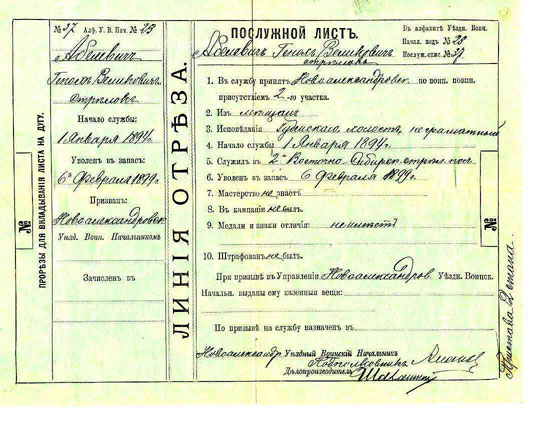 № 37 Алф. У. В. Нач. № 25
Абелевичъ
Гополъ Велиховичъ
стрѣлокъ
Начало службы:
1 Января 1894 г.
Уволен въ запасъ:
6го Февраля 1899 г.
Призван:
Новоалександровск.
Уѣзд. Воин. Начальником
Зачислен въ
№
ПРОРѢЗЫ ДЛЯ ВКЛАДЫВАНІЯ ЛИСТА НА ДУГУ.
ЛИНІЯ ОТРѢЗА.
ПОСЛУЖНОЙ ЛИСТЪ.
Въ алфавитѣ Уѣздн. Воин.
Начал. под №
Послуж. спис. № 37.
Абелевичъ Гополъ Велиховичъ
стрѣлокъ
1. Въ службу принятъ Новоалександровск. по воин. повин.
присутствіем 2-го участка.
2. Изъ мѣщанъ
3. Исповѣданія Іудейскаго холостъ, неграматный
4. Начало службы 1 Января 1894 г.
5. Служилъ въ 2м Восточно-Сибирск. стрѣлк.
6. Уволен въ запасъ 6 Февраля 1899 г.
7. Мастерство не знаетъ
8. Въ кампаніи не был.
9. Медали и знаки отличія: не имѣетъ
10. Штрафован не был.
При призывѣ въ Управленіи Новоалександров. Уѣздн. Воинск.
Начальн. выданы ему казенныя вещи:
По призывѣ на службу назначен въ
Новоалександр Уѣздный Воинскій Начальникъ
Подполковникъ
Дѣлопроизводитель
№
Пристава 2 стана.